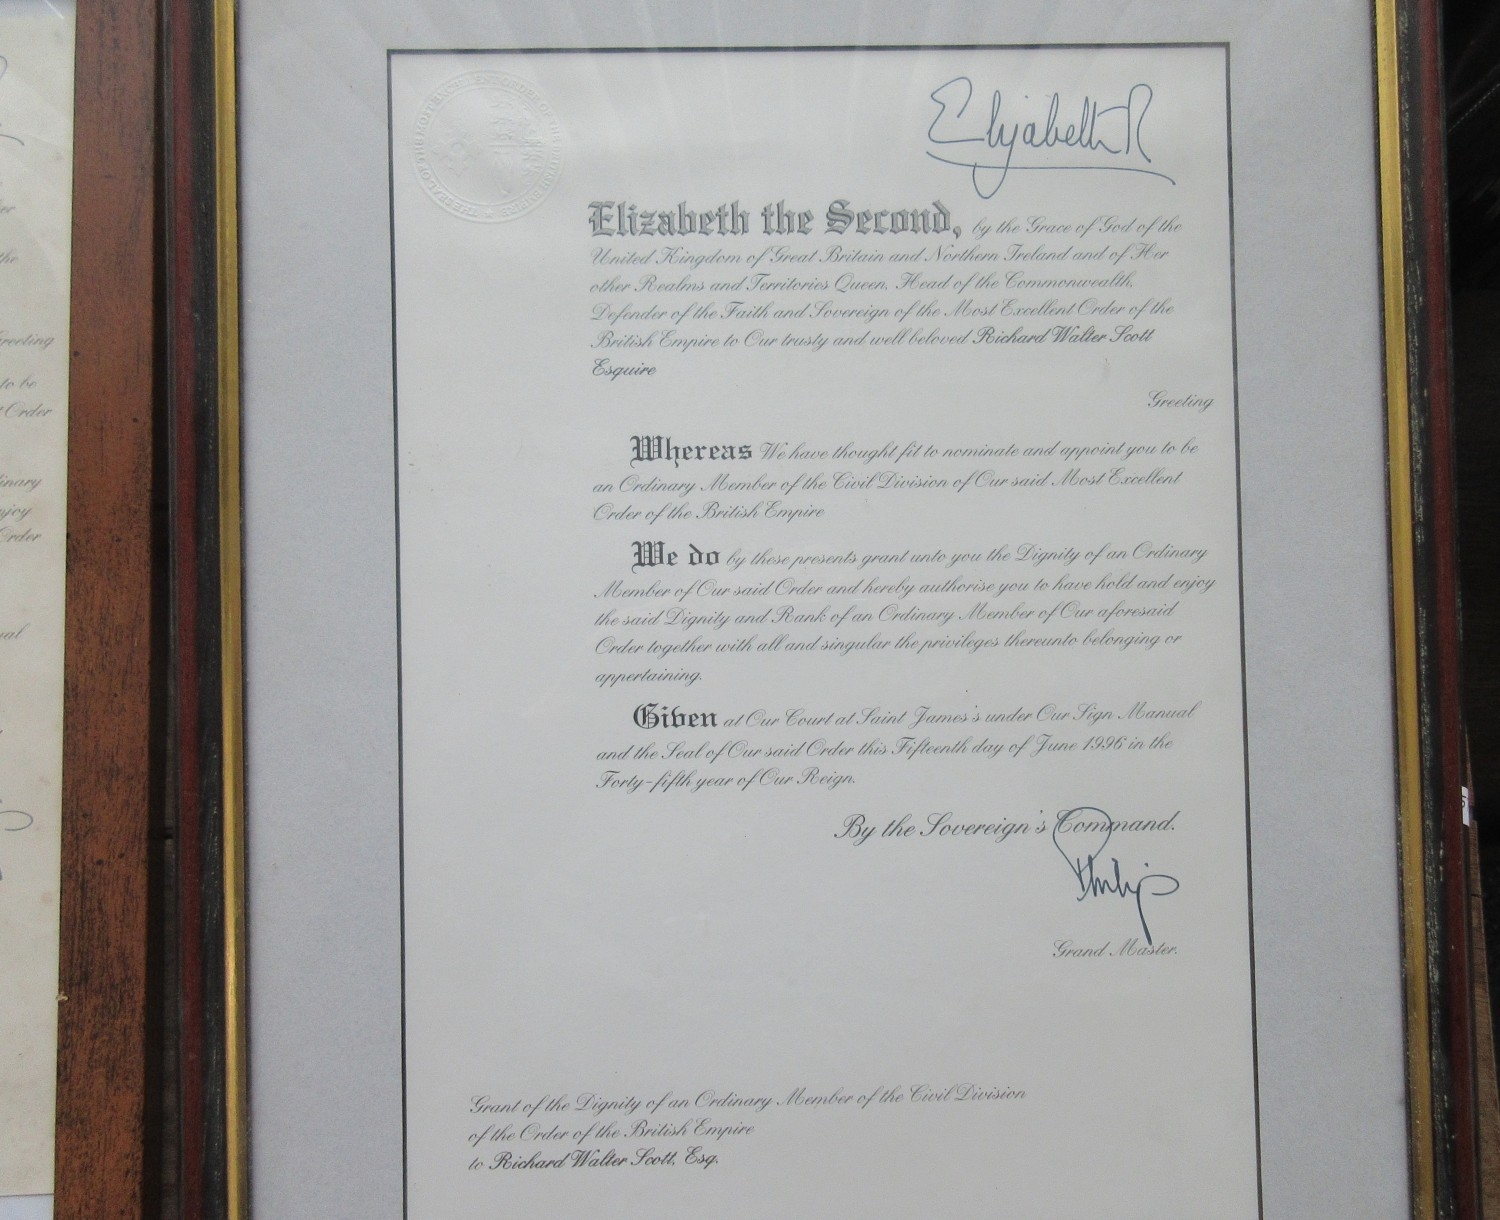 Elizabeth R
Elizabeth the Second, by the Grace of God of the
United Kingdom of Great Britain and Northern Ireland and of Her
other Realms and Territories Queen, Head of the Commonwealth,
Defender of the Faith and Sovereign of the Most Excellent Order of the
British Empire to Our trusty and well beloved Richard Walter Scott
Esquire
Greeting
Whereas We have thought fit to nominate and appoint you to be
an Ordinary Member of the Civil Division of Our said Most Excellent
Order of the British Empire
We do by these presents grant unto you the Dignity of an Ordinary
Member of Our said Order and hereby authorise you to have hold and enjoy
the said Dignity and Rank of an Ordinary Member of Our aforesaid
Order together with all and singular the privileges thereunto belonging or
appertaining.
Given at Our Court at Saint James's under Our Sign Manual
and the Seal of Our said Order this Fifteenth day of June 1996 in the
Forty-fifth year of Our Reign.
By the Sovereign's Command.
Philip
Grand Master.
Grant of the Dignity of an Ordinary Member of the Civil Division
of the Order of the British Empire
to Richard Walter Scott, Esq.
the
Greeting
to be
Order
enjoy
Order